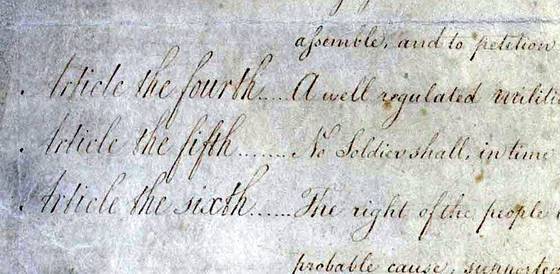 assemble, and to petition
Article the fourth..... A well regulated militi
Article the fifth........ No Soldier shall, in time
Article the sixth...... The right of the people
probable cause, supported